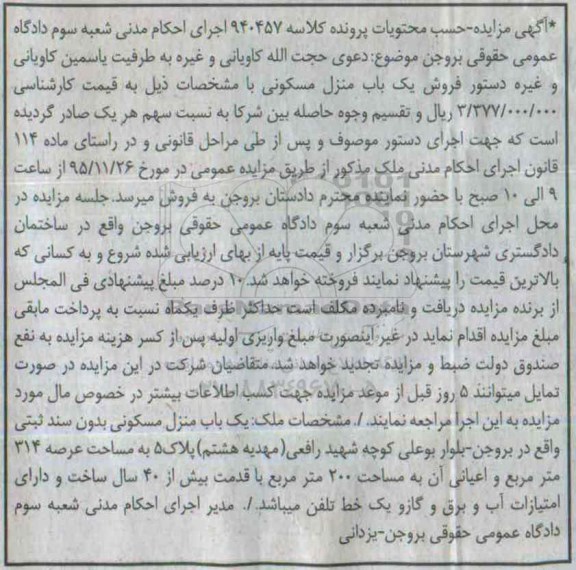 *آگهی مزایده-حسب محتویات پرونده کلاسه ۹۴۰۴۵۷ اجرای احکام مدنی شعبه سوم دادگاه
عمومی حقوقی بروجن موضوع: دعوی حجت الله کاویانی و غیره به طرفیت یاسمین کاویانی
و غیره دستور فروش یک باب منزل مسکونی با مشخصات ذیل به قیمت کارشناسی
۳/۳۷۷/۰۰۰/۰۰۰ ریال و تقسیم وجوه حاصله بین شرکا به نسبت سهم هر یک صادر گردیده
است که جهت اجرای دستور موصوف و پس از طی مراحل قانونی و در راستای ماده ۱۱۴
قانون اجرای احکام مدنی ملک مذکور از طریق مزایده عمومی در مورخ ۹۵/۱۱/۲۶ از ساعت
۹ الی ۱۰ صبح با حضور نماینده محترم دادستان بروجن به فروش میرسد. جلسه مزایده در
محل اجرای احکام مدنی شعبه سوم دادگاه عمومی حقوقی بروجن واقع در ساختمان
دادگستری شهرستان بروجن برگزار و قیمت پایه از بهای ارزیابی شده شروع و به کسانی که
بالاترین قیمت را پیشنهاد نمایند فروخته خواهد شد. ۱۰ درصد مبلغ پیشنهادی فی المجلس
از برنده مزایده دریافت و نامبرده مکلف است حداکثر ظرف یکماه نسبت به پرداخت مابقی
مبلغ مزایده اقدام نماید در غیر اینصورت مبلغ واریزی اولیه پس از کسر هزینه مزایده به نفع
صندوق دولت ضبط و مزایده تجدید خواهد شد. متقاضیان شرکت در این مزایده در صورت
تمایل میتوانند ۵ روز قبل از موعد مزایده جهت کسب اطلاعات بیشتر در خصوص مال مورد
مزایده به این اجرا مراجعه نمایند./. مشخصات ملک: یک باب منزل مسکونی بدون سند ثبتی
واقع در بروجن-بلوار بوعلی کوچه شهید رافعی(مهدیه هشتم)پلاک۵ به مساحت عرصه ۳۱۴
متر مربع و اعیانی آن به مساحت ۲۰۰ متر مربع با قدمت بیش از ۴۰ سال ساخت و دارای
امتیازات آب و برق و گازو یک خط تلفن میباشد./. مدیر اجرای احکام مدنی شعبه سوم
دادگاه عمومی حقوقی بروجن-یزدانی